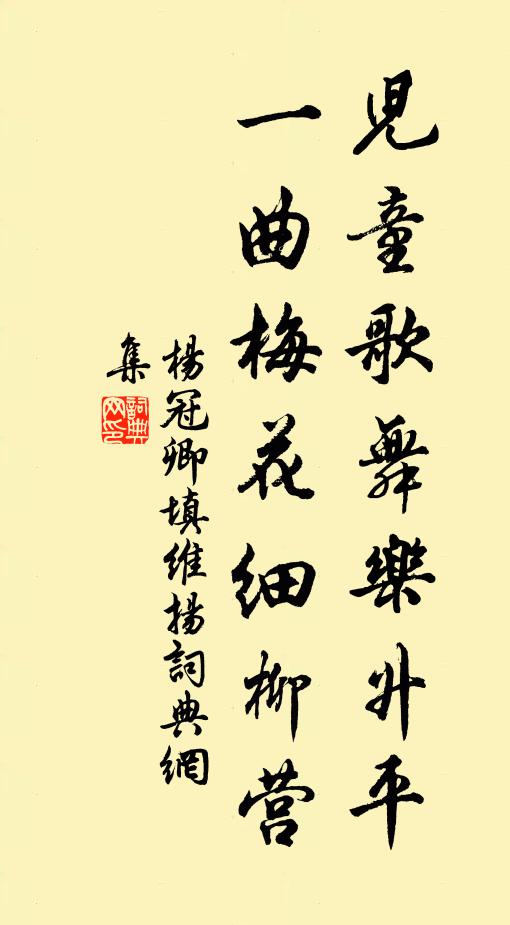 兒童歌舞樂升平
一曲梅花細柳营
楊冠卿填維揚詞典網
集
詞典
网印